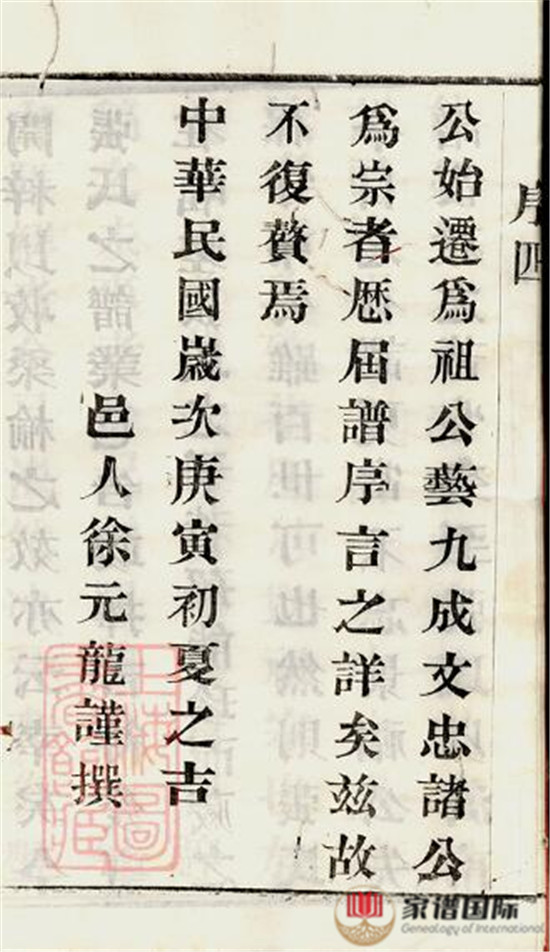 序四
公始遷爲祖公藝九成文忠諸公
爲宗者歷屆譜序言之詳矣玆故
不復贅焉
中華民國歲次庚寅初夏之吉
邑人徐元龍謹撰
上海圖
書館藏
家谱国际
Genealogy of International